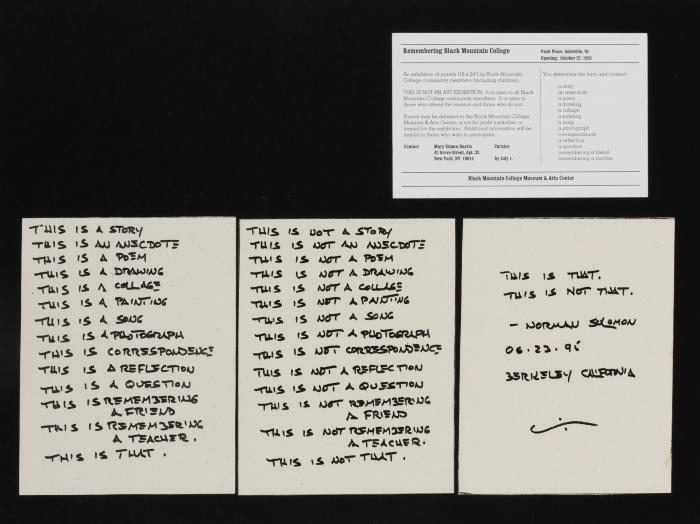 Remembering Black Mountain College
Pack Place, Asheville, NC
Opening: October 27, 1995
An exhibition of panels (18 x 24") by Black Mountain
College community members (including children).
THIS IS NOT AN ART EXHIBITION. It is open to all Black
Mountain College community members. It is open to
those who attend the reunion and those who do not.
Panels may be donated to the Black Mountain College
Museum & Arts Center, a not for profit institution, or
loaned for the exhibition. Additional information will be
mailed to those who wish to participate.
Contact
Mary Emma Harris
Curator
42 Grove Street, Apt. 32
New York, NY 10014
by July 1.
You determine the form and content:
a story
an anecdote
a poem
a drawing
a collage
a painting
a song
a photograph
correspondence
a reflection
a question
remembering a friend
remembering a teacher
Black Mountain College Museum & Arts Center
THIS IS A STORY
THIS IS AN ANECDOTE
THIS IS A POEM
THIS IS A DRAWING
THIS IS A COLLAGE
THIS IS A PAINTING
THIS IS A SONG
THIS IS A PHOTOGRAPH
THIS IS CORRESPONDENCE
THIS IS A REFLECTION
THIS IS A QUESTION
THIS IS REMEMBERING
A FRIEND
THIS IS REMEMBERING
A TEACHER.
THIS IS THAT.
THIS IS NOT A STORY
THIS IS NOT AN ANECDOTE
THIS IS NOT A POEM
THIS IS NOT A DRAWING
THIS IS NOT A COLLAGE
THIS IS NOT A PAINTING
THIS IS NOT A SONG
THIS IS NOT A PHOTOGRAPH
THIS IS NOT CORRESPONDENCE
THIS IS NOT A REFLECTION
THIS IS NOT A QUESTION
THIS IS NOT REMEMBERING
A FRIEND
THIS IS NOT REMEMBERING
A TEACHER.
THIS IS NOT THAT.
THIS IS THAT.
THIS IS NOT THAT.
– NORMAN SOLOMON
06.23.95
BERKELEY CALIFORNIA